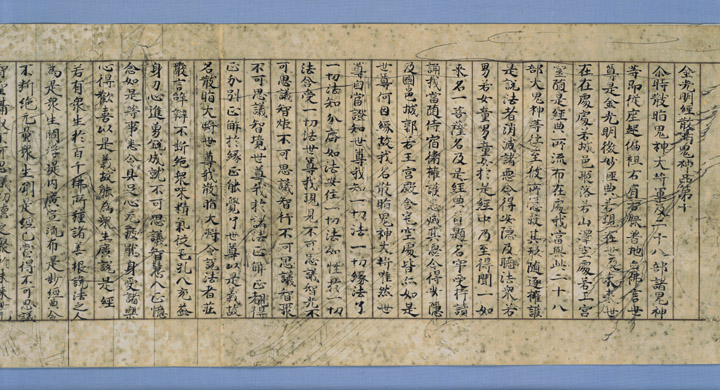 金光明經散脂鬼神品第十
尒時散脂鬼神大將軍及二十八部諸鬼神
等即從座起偏袒右肩右膝著地白佛言世
尊是金光明微妙經典若現在世及未來世
在在處處若城邑聚落若山澤空處若王宮
宅隨是經典所流布在處我當與此二十八
部大鬼神等往至彼所隱蔽其形隨逐擁護
是說法者消滅諸惡令得安隱及聽法衆若
男若女童男童女於是經中乃至得聞一如
來名一菩薩名及是經典首題名字受持讀
誦我當隨侍宿衛擁護悉滅其惡令得安隱
及國邑城郭若王宮殿舍宅空處皆亦如是
世尊何因緣故我名散脂鬼神大將唯然世
尊自當證知世尊我知一切法一切緣法了
一切法知法分齊如法安住一切法如性於一切
法含受一切法世尊我現見不可思議智光不
可思議智炬不可思議智行不可思議智聚
不可思議智境世尊我於諸法正解正觀得
正分別正解於緣正能覺了世尊以是義故
名散脂大將世尊我散脂大將令說法者莊
嚴言辭辯不斷絕衆味精氣從毛孔入充益
身力心進勇銳成就不可思議智慧入正憶
念如是等事悉令具足心无疲猒身受諸樂
心得歡喜以是義故能爲衆生廣說是經
若有衆生於百千佛所種諸善根說法之人
爲是衆生閻浮提內廣宣流布是妙經令
不斷絕无量衆生聞是經已當得不可思議